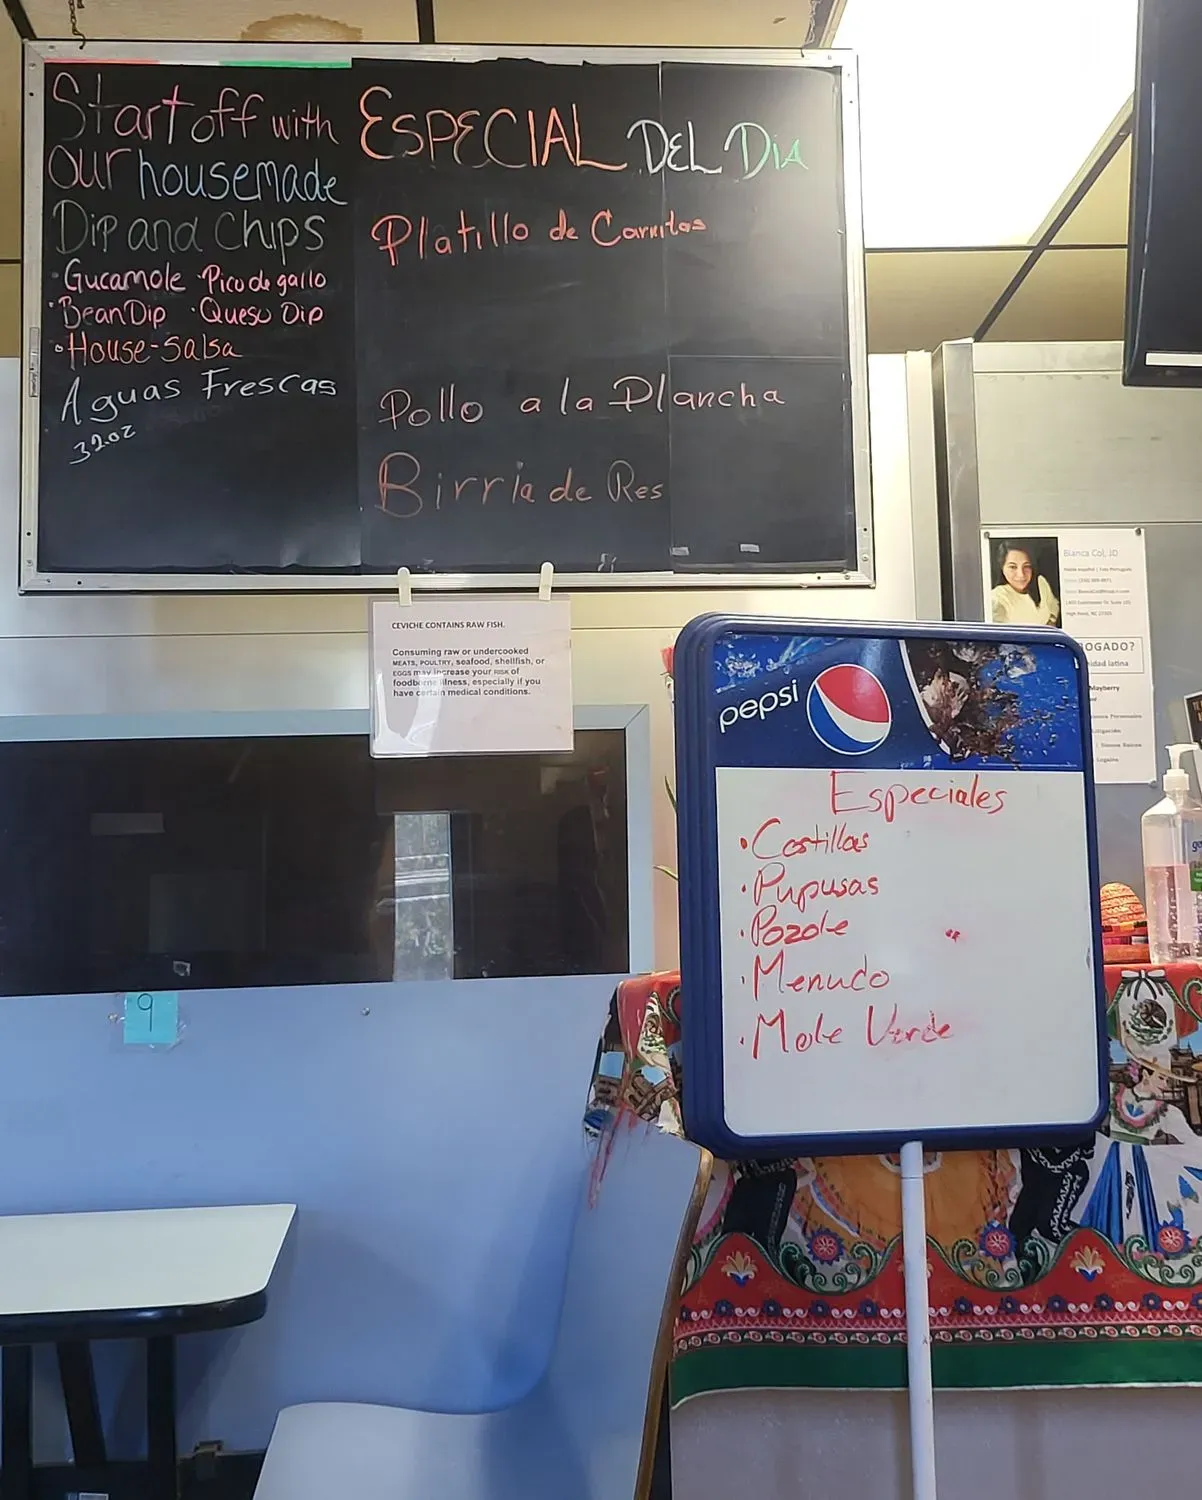 Start off with
our housemade
Dip and Chips
·Gucamole ·Pico de gallo
·Bean Dip ·Queso Dip
·House-Salsa
Aguas Frescas
32oz
ESPECIAL DEL DiA
Platillo de Carnitas
Pollo a la Plancha
Birria de Res
CEVICHE CONTAINS RAW FISH.
Consuming raw or undercooked
MEATS, POULTRY, seafood, shellfish, or
EGGS may increase your RISK of
foodborne illness, especially if you
have certain medical conditions.
Bianca Col, JD
High Point, NC
OGADO?
nidad latina
Mayberry
Personales
Litigación
Bienes Raices
Legales
pepsi
Especiales
·Costillas
·Pupusas
·Pozole
·Menudo
·Mole Verde
9